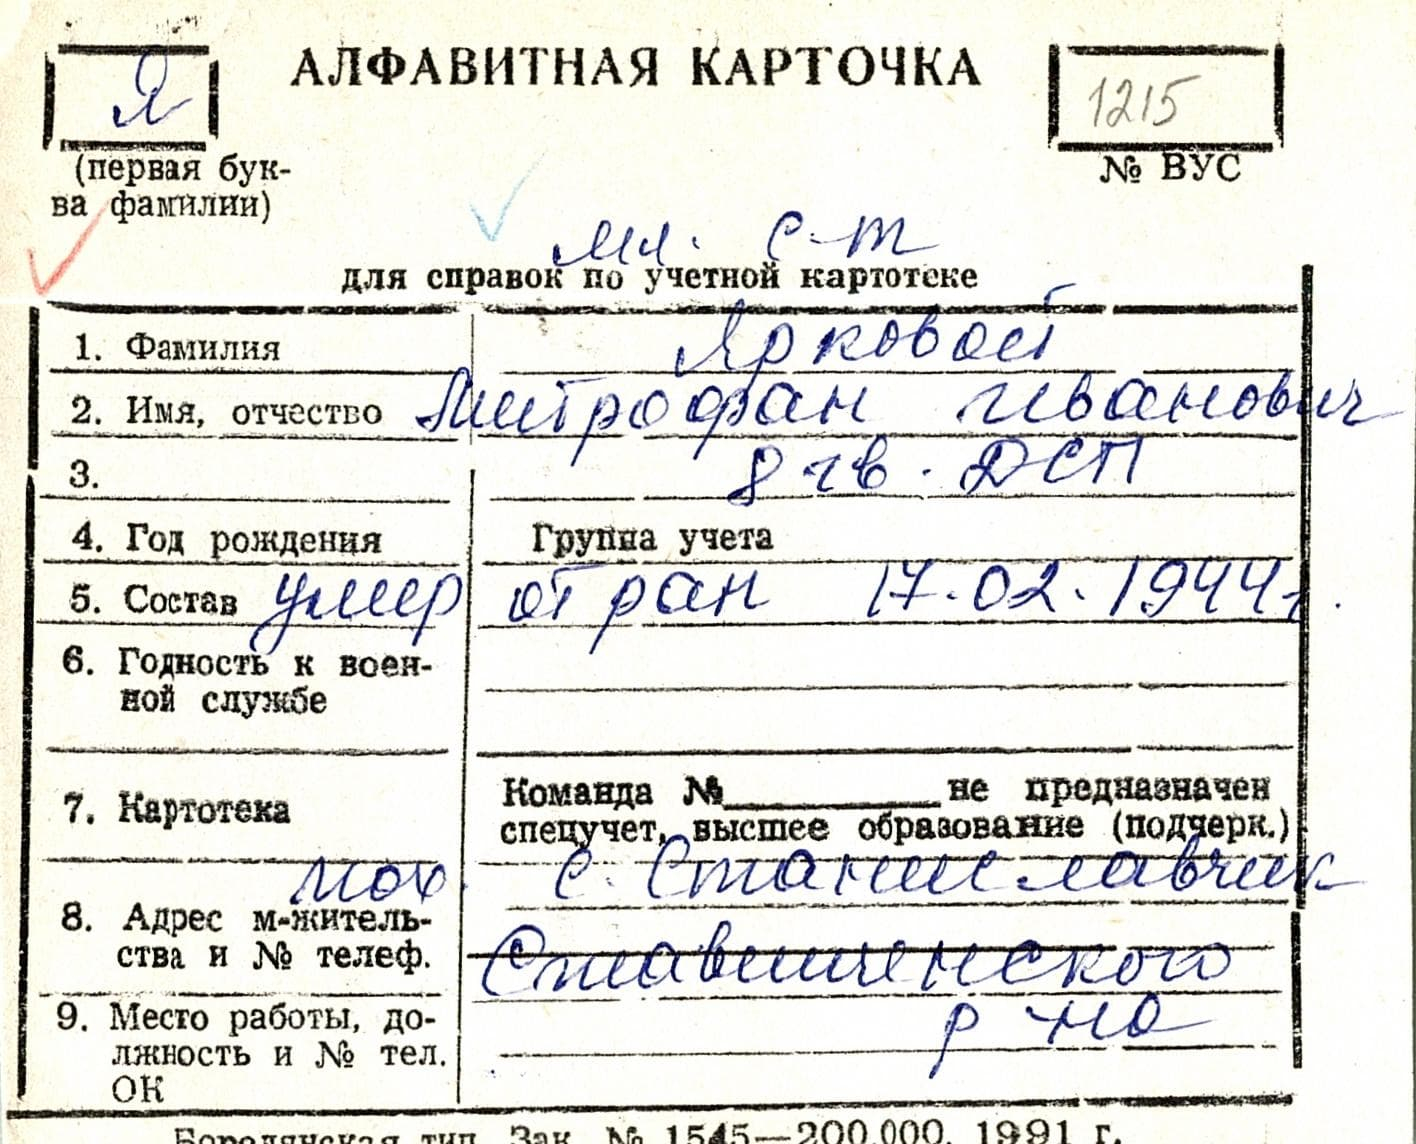 Я АЛФАВИТНАЯ КАРТОЧКА 1215
(первая бук-
ва фамилии)
№ ВУС
мл. с-т
для справок по учетной картотеке
1. Фамилия Ярковой
2. Имя, отчество Митрофан Иванович
3. 8 гв. ДСП
4. Год рождения Группа учета
5. Состав умер от ран 17.02.1944 г.
6. Годность к воен-
ной службе
7. Картотека
Команда № не предназначен
спецучет, высшее образование (подчерк.)
пох. с. Станиславчик
8. Адрес м-житель-
ства и № телеф.
Ставищенского
р-на
9. Место работы, до-
лжность и № тел.
ОК
Бородянская тип. Зак. № 1545—200.000. 1991 г.